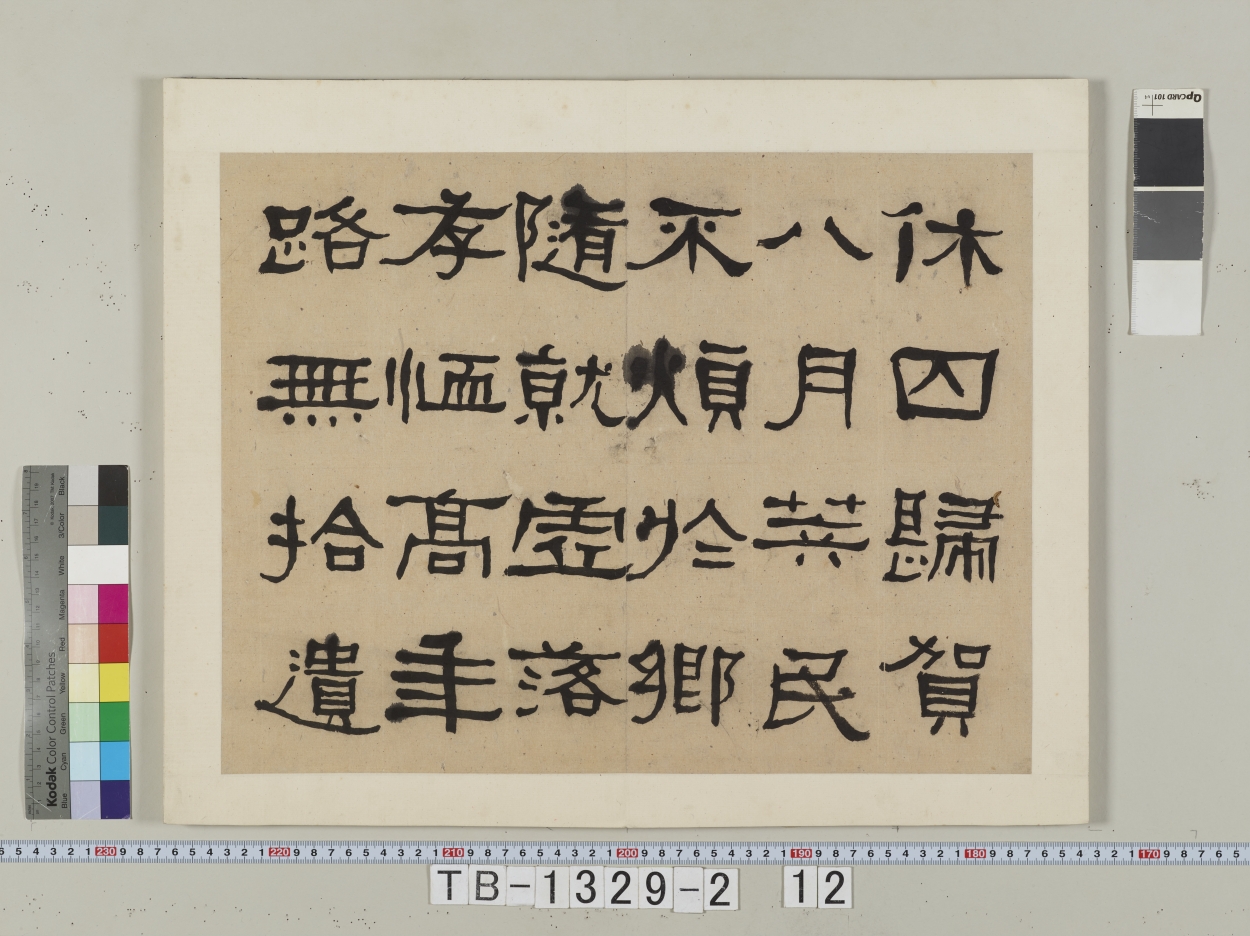 休囚歸賀
八月筭民
不煩於鄉
隨就虛落
存恤高年
路無拾遺
QpCARD 101
Kodak Color Control Patches
Blue Cyan Green Yellow Red Magenta White 3/Color Black
230 220 210 200 190 180 170
TB-1329-2 12